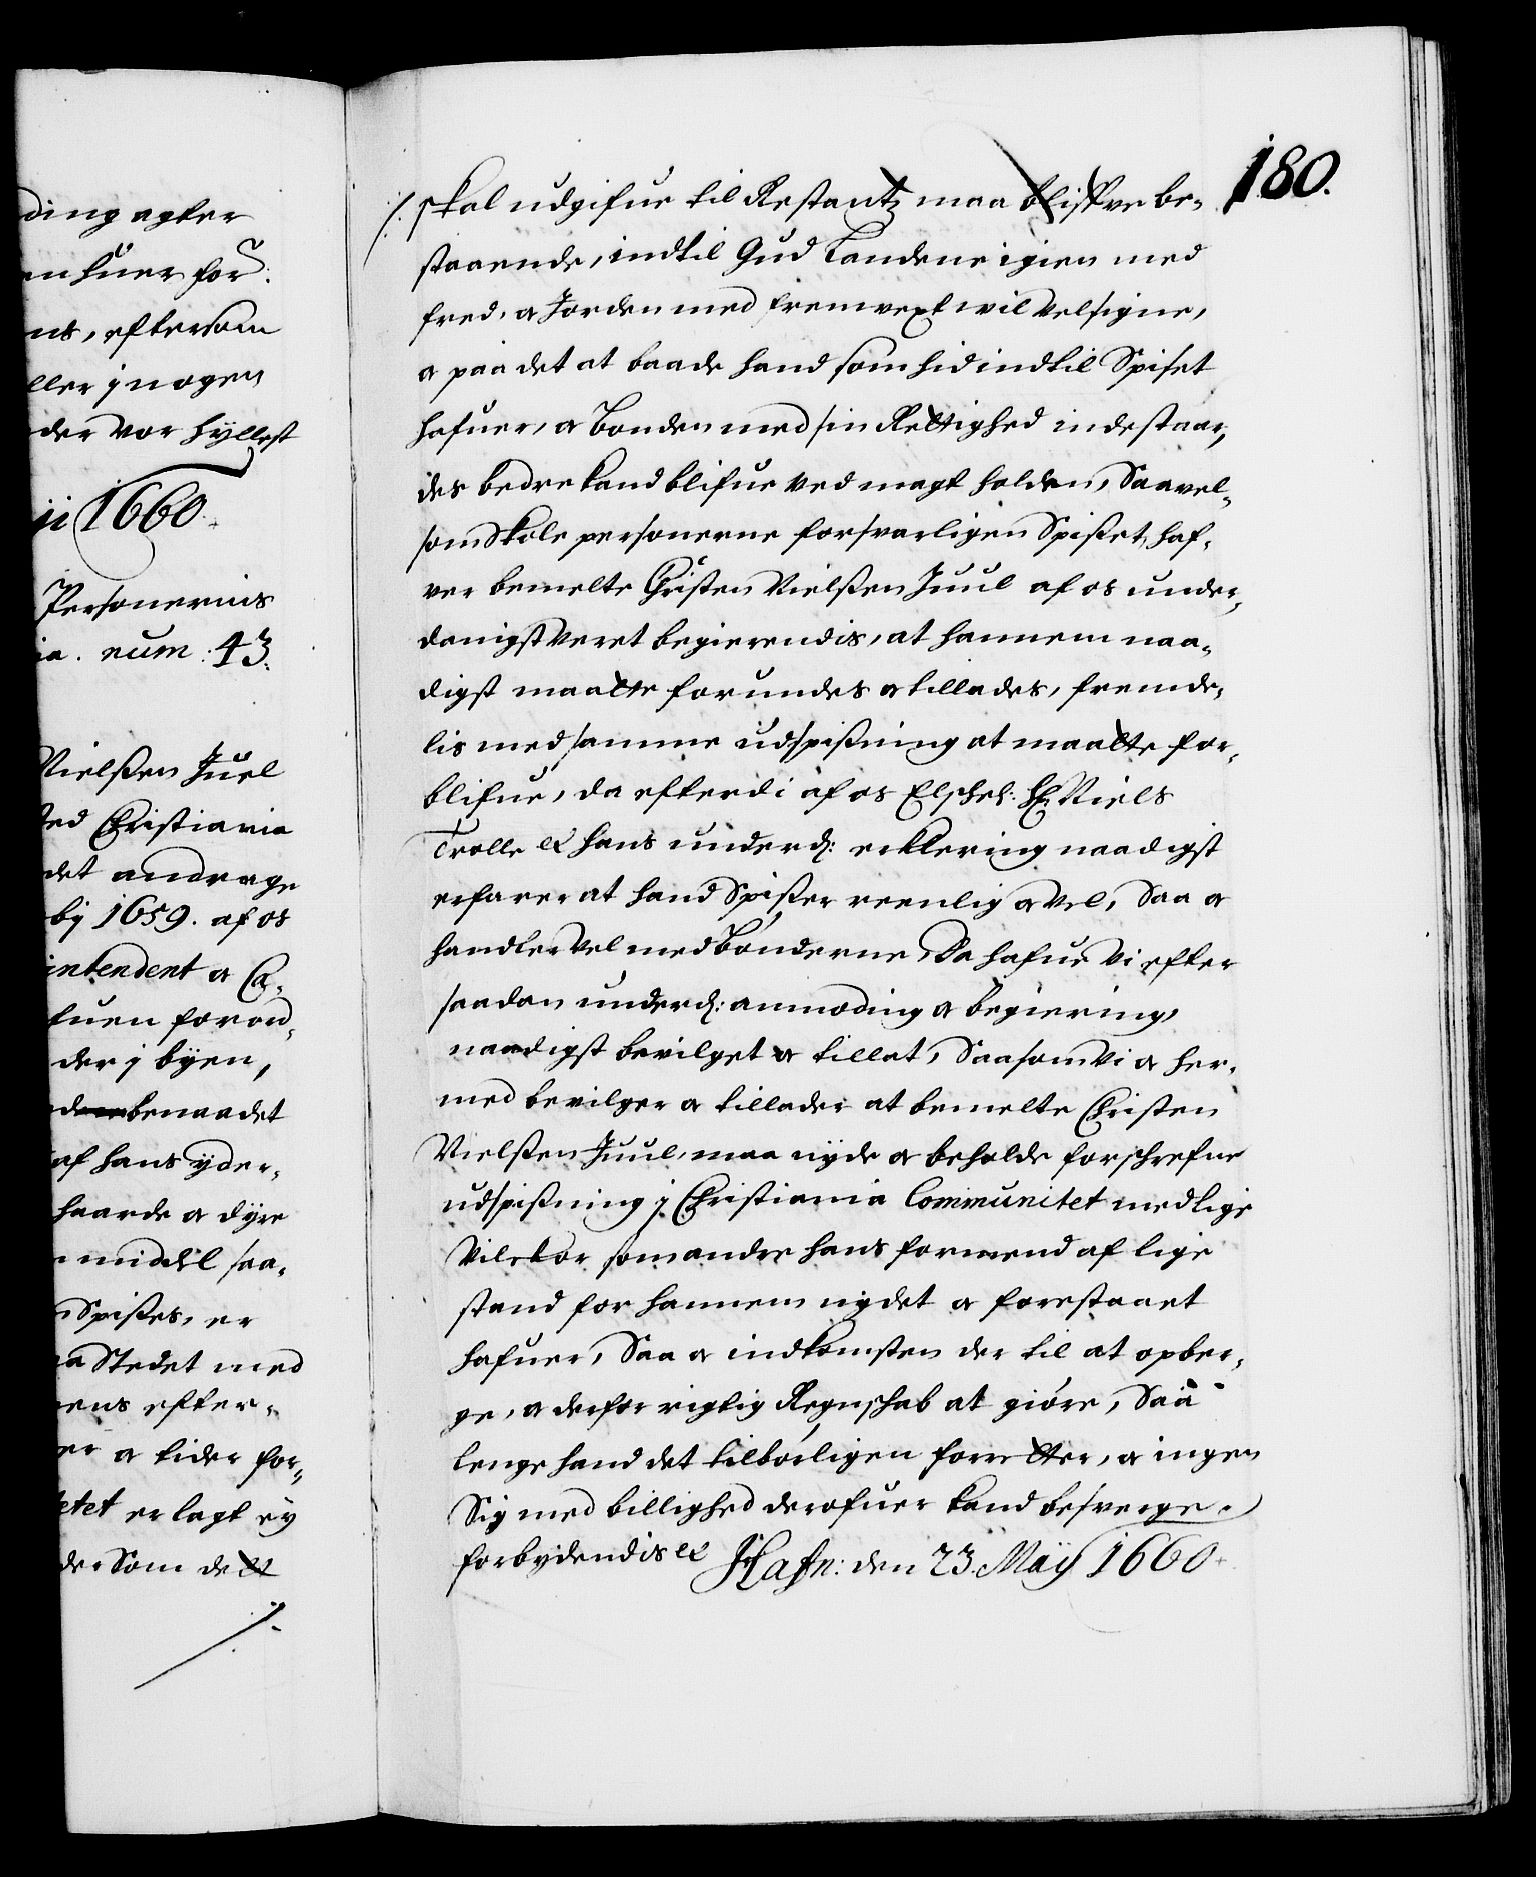 ding agter
en huer for:
ns, eftersom
ller j nogen
der vor hyllest
ii 1660.
Personernis
ia. num: 43.
Nielßen Juel
ed Christiania
det andrage
bij 1659. af os
intendent og Ca-
fuen forord-
der j byen,
benaadet
af hans yder-
haarde og dyre
middel saa-
Spißes, er
a Stedet med
ens efter-
er og tider for-
tetet erlagt ey
der Som dett
./.
180.
/. skal udgifue til Restantz maa blifve be-
staaende, indtil Gud Landene igien med
fred, og Jorden med fremvext wil velsigne,
og paa det at baade hand som hid indtil Spiset
hafuer, og Bonden med sin Rettighed indestaar,
des bedre kand blifue ved magt holden, Saavel-
som Skole personerne forsvarligen Spißet, haf-
ver bemelte Christen Nielßen Juul af os under-
danigst veret begierendis, at hannem naa-
digst maatte forundes og tillades, fremde-
lis med samme udspißning at maatte for-
blifue, da efterdi af os Elschel: Hr: Niels
Trolle etc hans underd: erklering naadigst
erfarer at hand Spißer reenlig og vel, Saa og
handler vel med Bønderne Da hafue Vi efter
saadan underd: anmoding og begiering,
naadigst bevilget og tillat, Saasom Vi og her-
med bevilger og tillader at bemelte Christen
Nielßen Juul, maa nyde og beholde forschrefne
udspißning j Christiania Communitet med lige
Vilckor som andre hans formend af lige
stand for hannem nydet og forestaaet
hafuer, Saa og indkomsten der til at opber-
ge, og derfor rigtig Regnschab at giøre, Saa
lenge hand det tilbørligen forretter, og ingen
Sig med billighed derofuer kand besverge.
forbydendis etc Hafn: den 23. Maij 1660